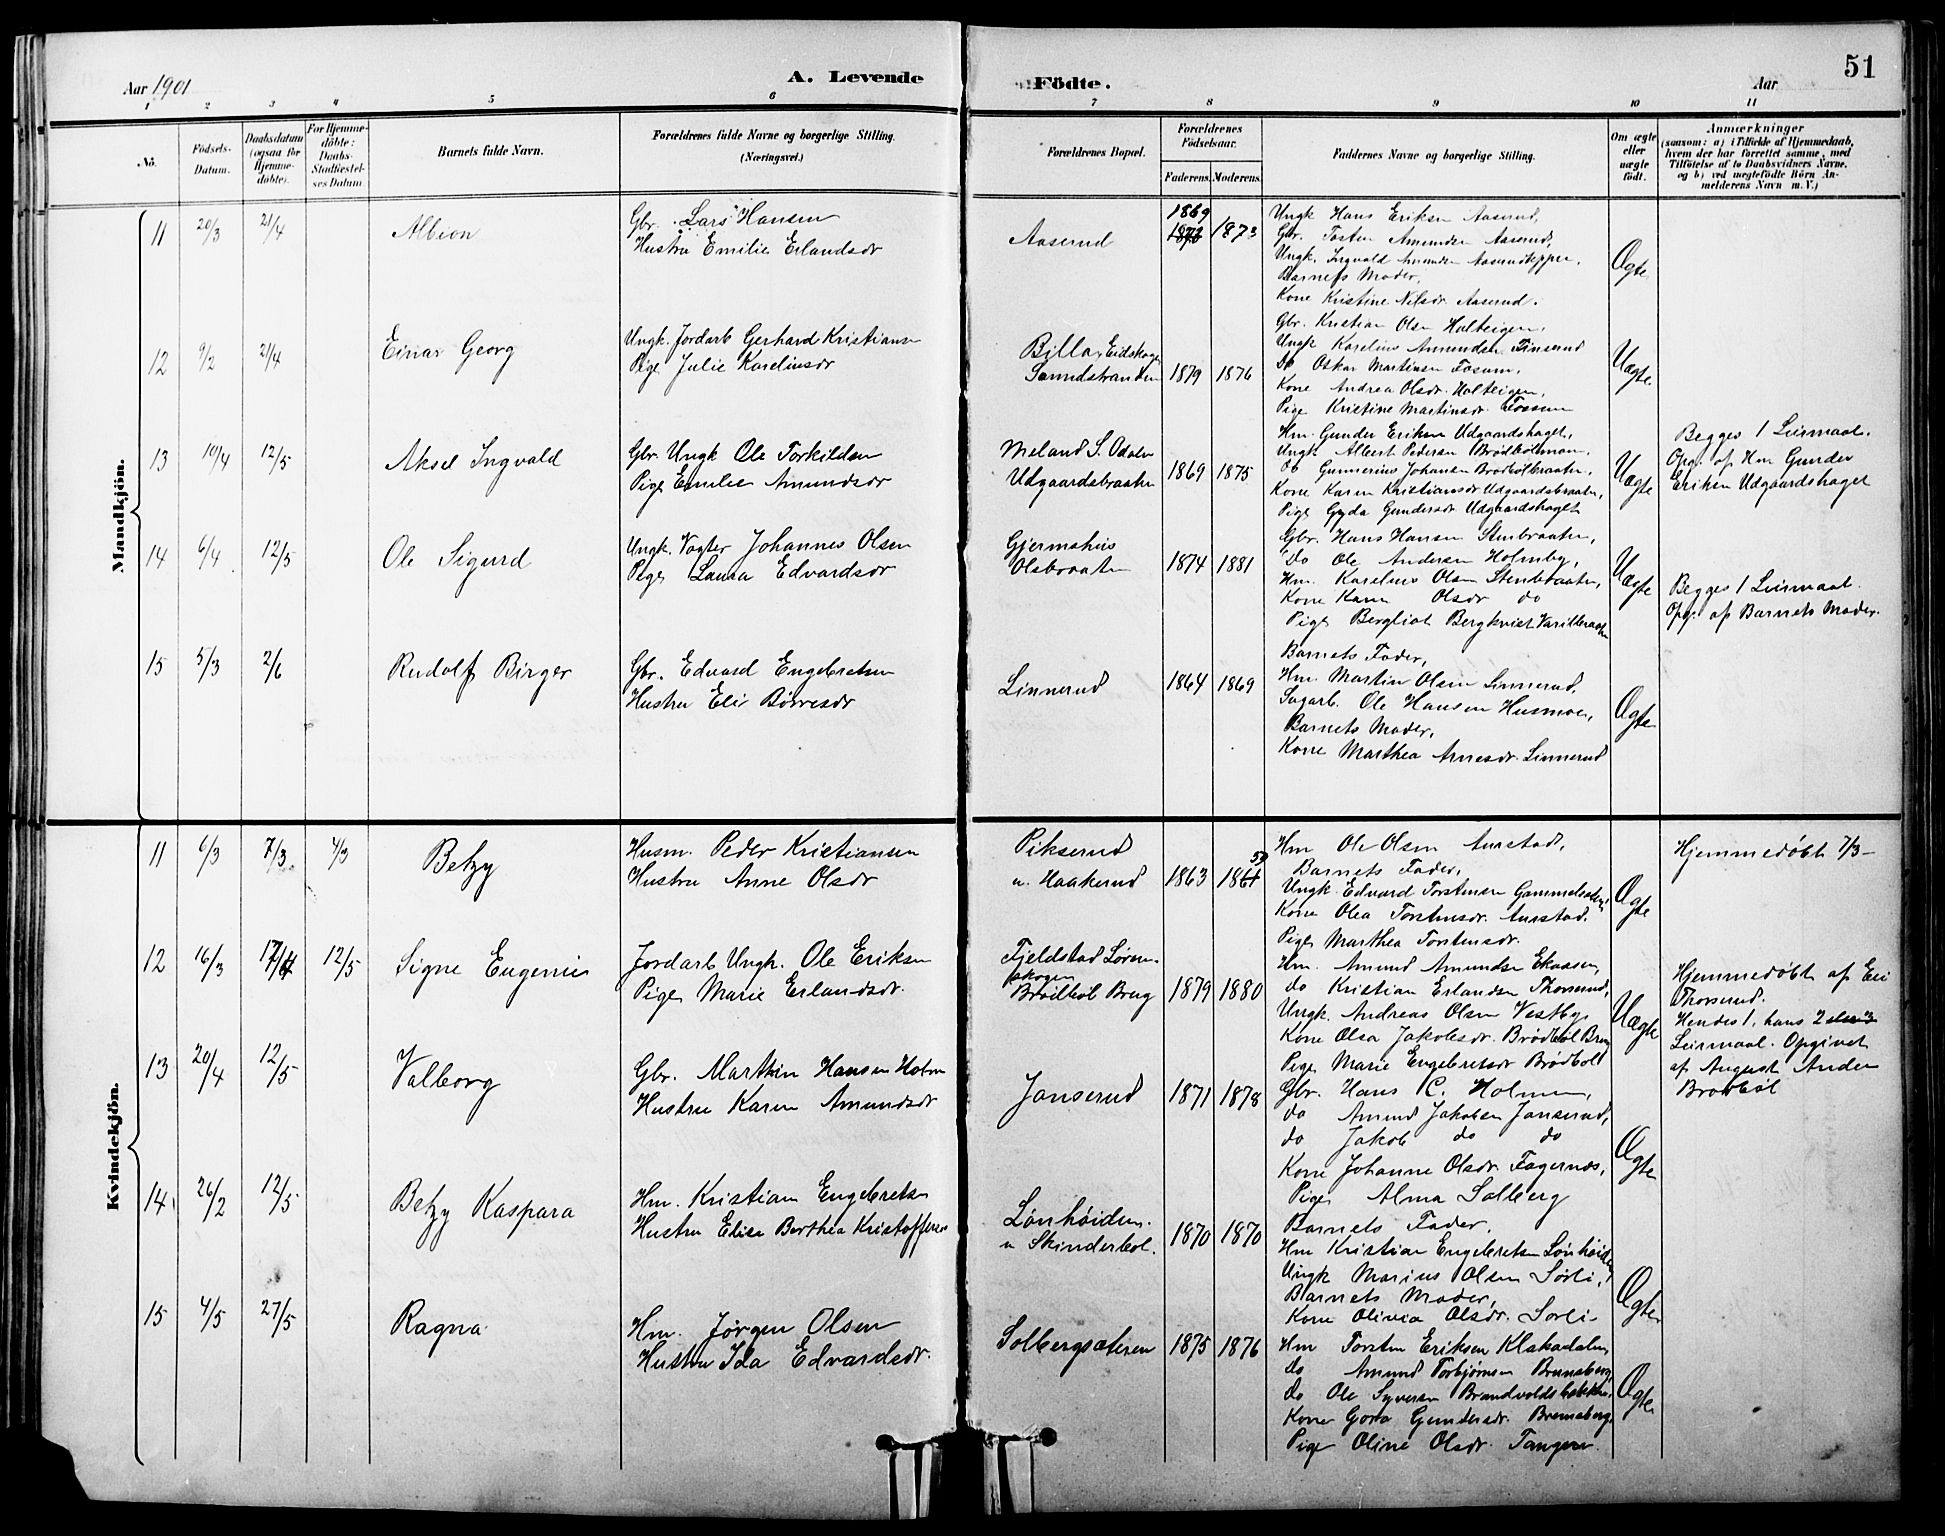 51
Aar 1901
A. Levende
Födte.
Aar
1 2 3 4 5 6 7 8 9 10 11
No.
Födsels-Datum.
Daabsdatum (ogsaa for Hjemme-döbte).
For Hjemme-döbte: Daabs-Stadfæstel-ses Datum
Barnets fulde Navn.
Forældrenes fulde Navne og borgerlige Stilling.
(Næringsvei.)
Forældrenes Bopæl.
Forældrenes Födselsaar.
Faderens. Moderens.
Faddernes Navne og borgerlige Stilling.
Om ægte eller uægte födt.
Anmærkninger
(saasom: a) i Tilfælde af Hjemmedaab,
hvem der har forrettet samme, med
Tilföielse af to Daabsvidners Navne,
og b) ved uægtefödte Börn An-
melderens Navn m. V.)
Mandkjön.
11 20/3 21/4 Albion
Gbr. Lars Hansen
Hustru Emilie Erlandsdr
Aaserud
1869
1873
Ungk Hans Eriksen Aaserud,
Gbr. Tosten Amundsen Aaserud,
Ungk. Ingvald Amundsen Aaserudteppen,
Barnets Moder,
Kone Kristine Nilsdr Aaserud.
Ægte
12 9/2 21/4 Einar Georg
Ungk. Jordarb Gerhard Kristiansen
Pige Julie Karelinsdr
Billa, Eidskogen
Sandstranden
1879 1876
Gbr. Kristian Olsen Holteigen,
Ungk Karelius Amundsen Finserud
do Oskar Martinsen Fosum,
Kone Andrea Olsdr Holteigen,
Pige Kristine Martinsdr. Fossum
Uægte
13 10/4 12/5 Aksel Ingvald
Gbr. Ungk Ole Torkildsen
Pige Emilie Amundsdr
Meland S. Odalen
Udgaardsbraaten
1869 1875
Hm. Gunder Eriksen Udgaardshaget,
Ungk Albert Pedersen Brödbölmoen,
do Gunnerius Johansen Brödbölbraaten,
Kone Karen Kristiansdr Udgaardsbraaten,
Pige Gyda Gundersdr Udgaardshaget
Uægte
Begges 1 Leiermaal.
Opg. af Hm Gunder
Eriksen Udgaardshaget
14 6/4 12/5 Ole Sigurd
Ungk. Vogter Johannes Olsen
Pige Laura Edvardsdr
Gjermshus
Olsbraaten
1874 1881
Gbr. Hans Hansen Stenbraaten,
do Ole Andersen Holmby,
Hm. Karelius Olsen Stenbraaten,
Kone Karen Olsdr do
Pige Bergliot Bergkvist
Uægte
Begges 1 Leiermaal.
Opg. af Barnets Moder.
15 5/3 2/6 Rudolf Birger
Gbr. Edvard Engebretsen
Hustru Eli Börresdr
Linnerud
1864 1869
Barnets Fader,
Hm. Martin Olsen Linnerud,
Sagarb. Ole Hansen Husmoen,
Barnets Moder,
Kone Marthea Arnesdr. Linnerud
Ægte
Kvindekjön.
11 6/3 7/3 4/3 Betzy
Husm. Peder Kristiansen
Hustru Anne Olsdr
Pikserud
u. Haakerud
1863 1861 59
Hm Ole Olsen Aurstad,
Barnets Fader,
Ungk. Edvard Torstensen
Kone Olea Torstensdr. Aurstad,
Pige Marthea Torstensdr.
Ægte
Hjemmedöbt 7/3
12 16/3 17/4 12/5 Signe Eugenie
Jordarb Ungk. Ole Eriksen
Pige Marie Erlandsdr.
Fjeldstad Lören-
skogen
Brödböl Brug
1879 1880
Hm. Amund Amundsen Ekaasen,
do Kristian Erlandsen Thorserud,
Ungk. Andreas Olsen Vestby,
Kone Olea Jakobsdr. Brödböl Brug
Pige Marie Engebretsdr Brödböl
Uægte
Hjemmedöbt af Eli
Thorserud.
Hendes 1, hans 2 eller 3
Leiermaal. Opgivet
af August Anden
Brödböl
13 20/4 12/5 Valborg
Gbr. Marthin Hansen Holm
Hustru Karen Amundsdr
Janserud
1871 1878
Gbr. Hans C. Holmen,
do Amund Jakobsen Janserud,
do Jakob do do
Kone Johanne Olsdr. Fagernæs,
Pige Alma Solberg
Ægte
14 26/2 12/5 Betzy Kaspara
Hm. Kristian Engebretsen
Hustru Elise Berthea Kristoffersen
Lönhöiden.
u Skinderböl.
1870 1870
Barnets Fader,
Hm Kristian Engebretsen Lönhöiden
Ungk Marius Olsen Sörli,
Barnets Moder,
Kone Olivia Olsdr. Sörli
Ægte
15 4/5 27/5 Ragna
Hm. Jørgen Olsen
Hustru Ida Edvardsdr.
Solbergsæteren
1875 1876
Hm Torsten Eriksen Klakadalen,
do Amund Torbjörnsen Brennaberg,
do Ole Syversen Brandvoldsbakken,
Kone Goro Gundersdr. Brennaberg,
Pige Oline Olsdr. Tangen.
Ægte